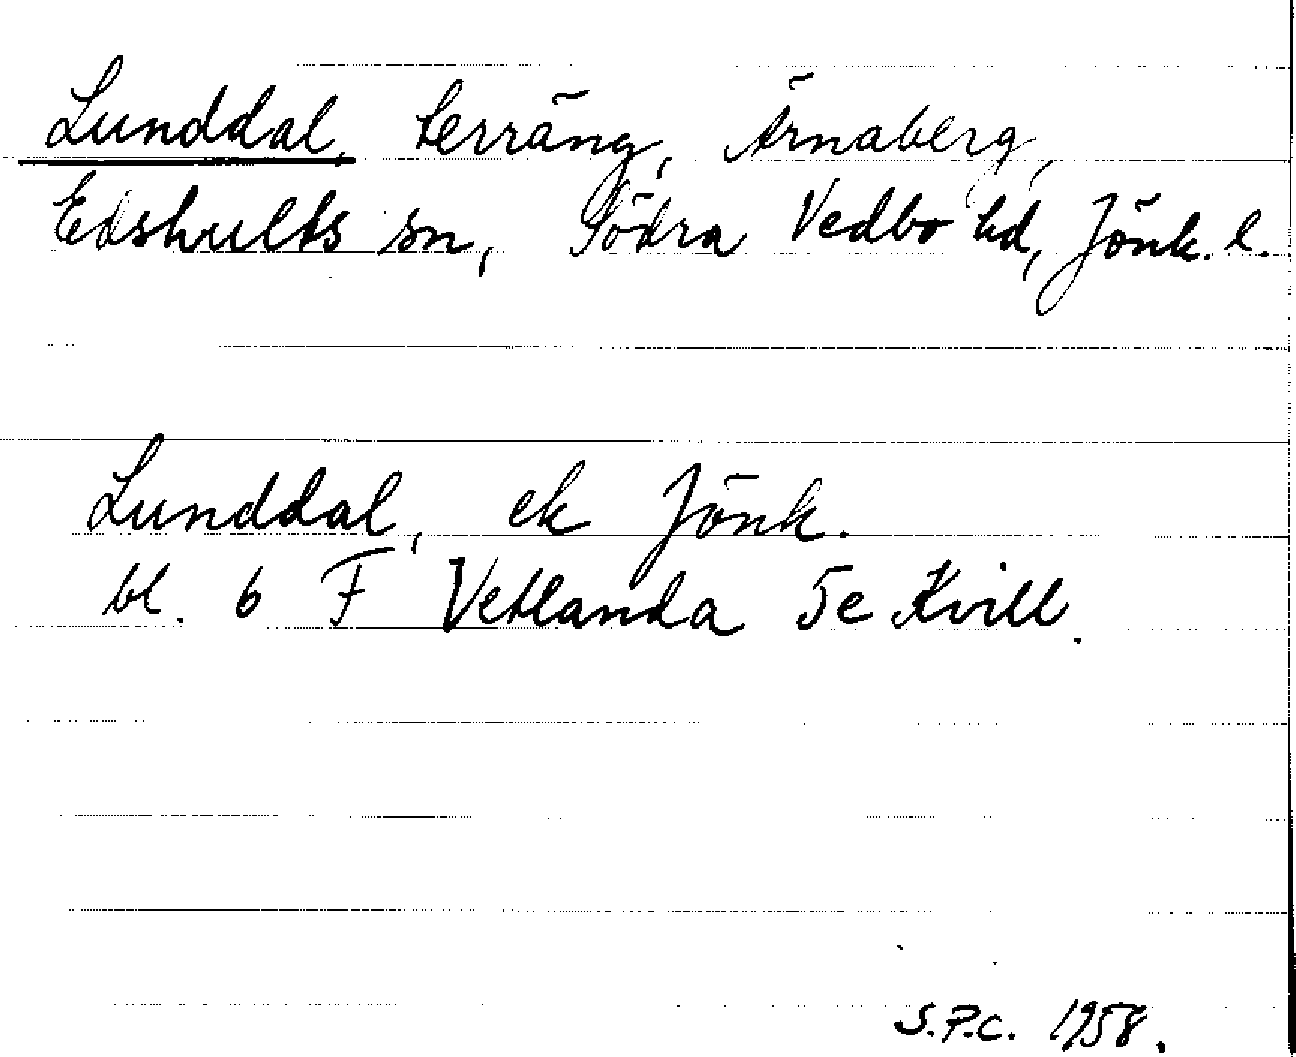 Lunddal, terräng, Ärnaberg,
Edshults sn, Södra Vedbo hd, Jönk. l.
Lunddal, ek Jönk.
bl. 6 F Vetlanda 5e Kvill.
S.P.C. 1958.